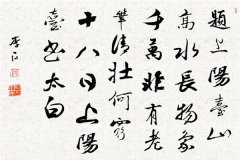 題上陽臺山
高水長物象
千萬非有老
筆清壯何窮
十八日上陽
臺書太白